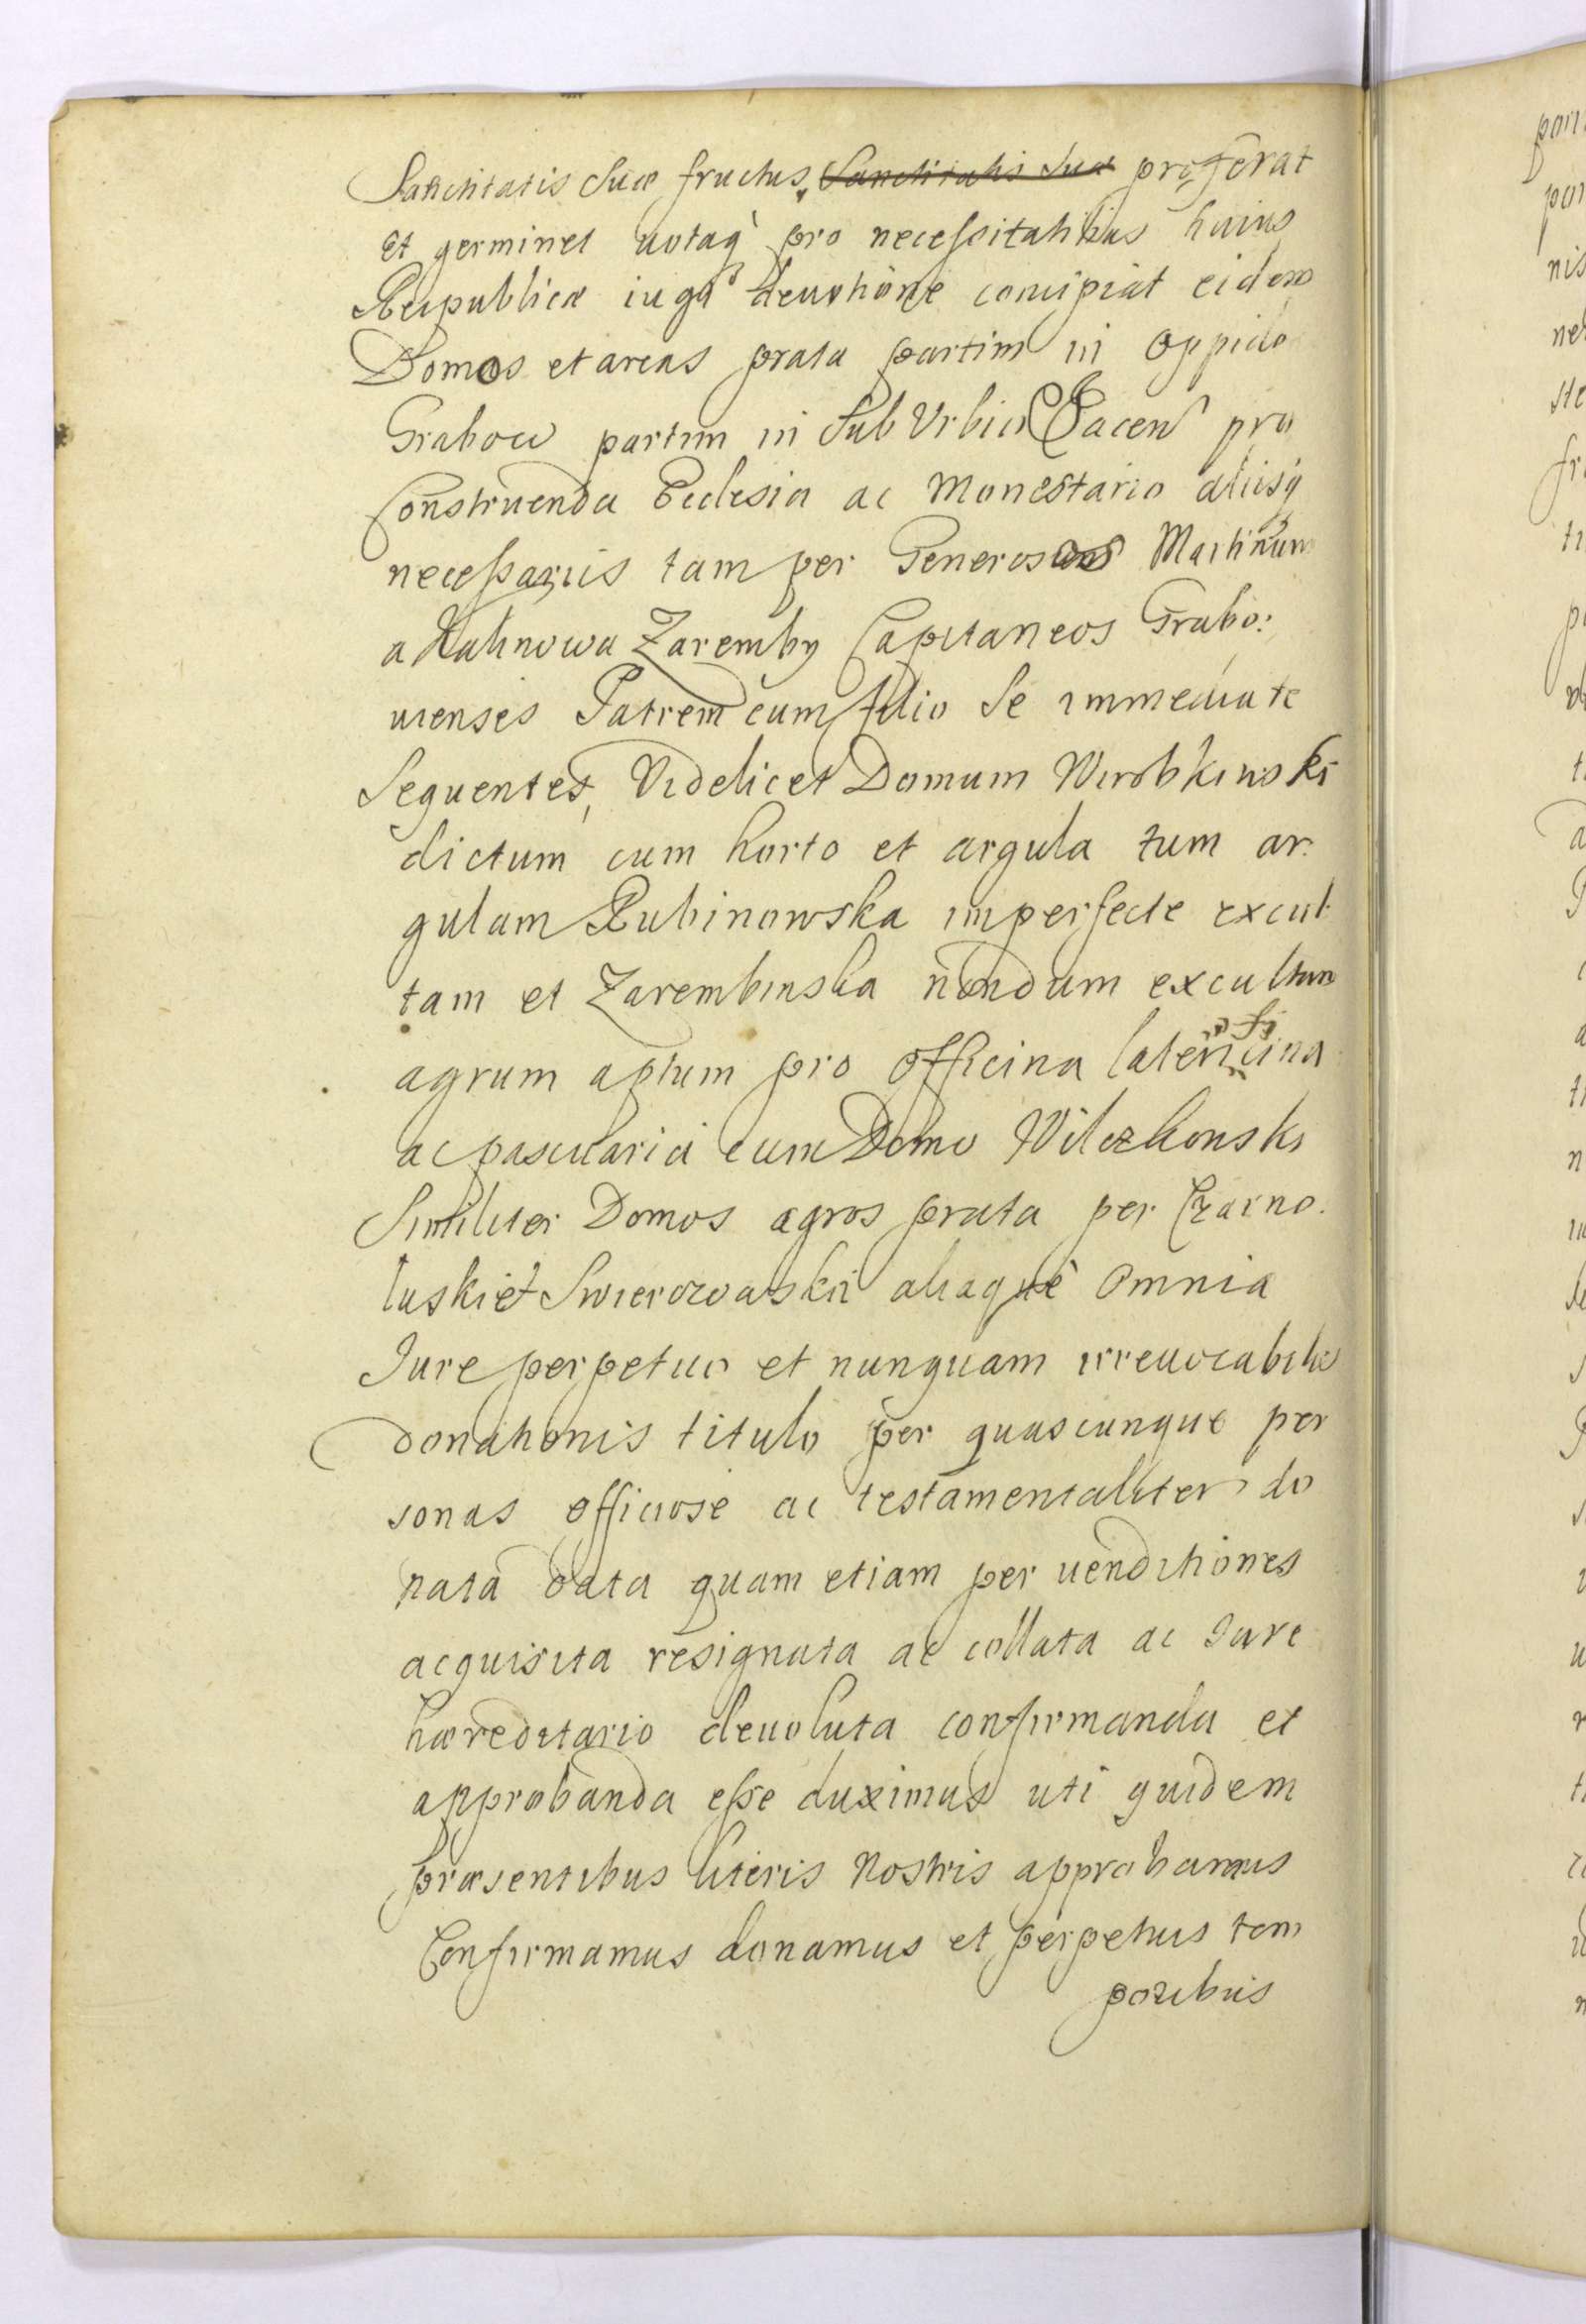 Sanctitatis Suæ fructus, Sanctitatis Suæ proferat
et germinet uotaq̀ pro necessitatibus huius
Reipublicæ iugi deuotione concipiat eidem
Domos et areas prata partim in Oppido
Grabow partim in SubUrbio Jacen pro
Construenda Ecclesia ac Monestario aliisq̀
necessariis tam per Generosos Martinum
a Kalinowa Zaremby Capitaneos Grabo:
uienses Patrem cum filio Se immediate
Sequentes, Videlicet Domum Wirobkinski
dictum cum horto et argula tum ar:
gulam Rubinowska imperfecte excul
tam et Zarembinska nondum excultam
agrum aptum pro Officina
ac cum Domo Wilczkonski
Similiter Domos agros prata per Czarno:
luski et aliaquè Omnia
Jure perpetuo et nunquam irreuocabili
donationis titulo per quascunque per
sonas officiose ac testamentaliter do
nata data quam etiam per uenditiones
acquisita resignata ac collata ac Jure
hæreditario deuoluta confirmanda et
approbanda esse duximus uti quidem
præsentibus literis Nostris approbamus
Confirmamus donamus et perpetuis tem
poribus
pon
por
nis